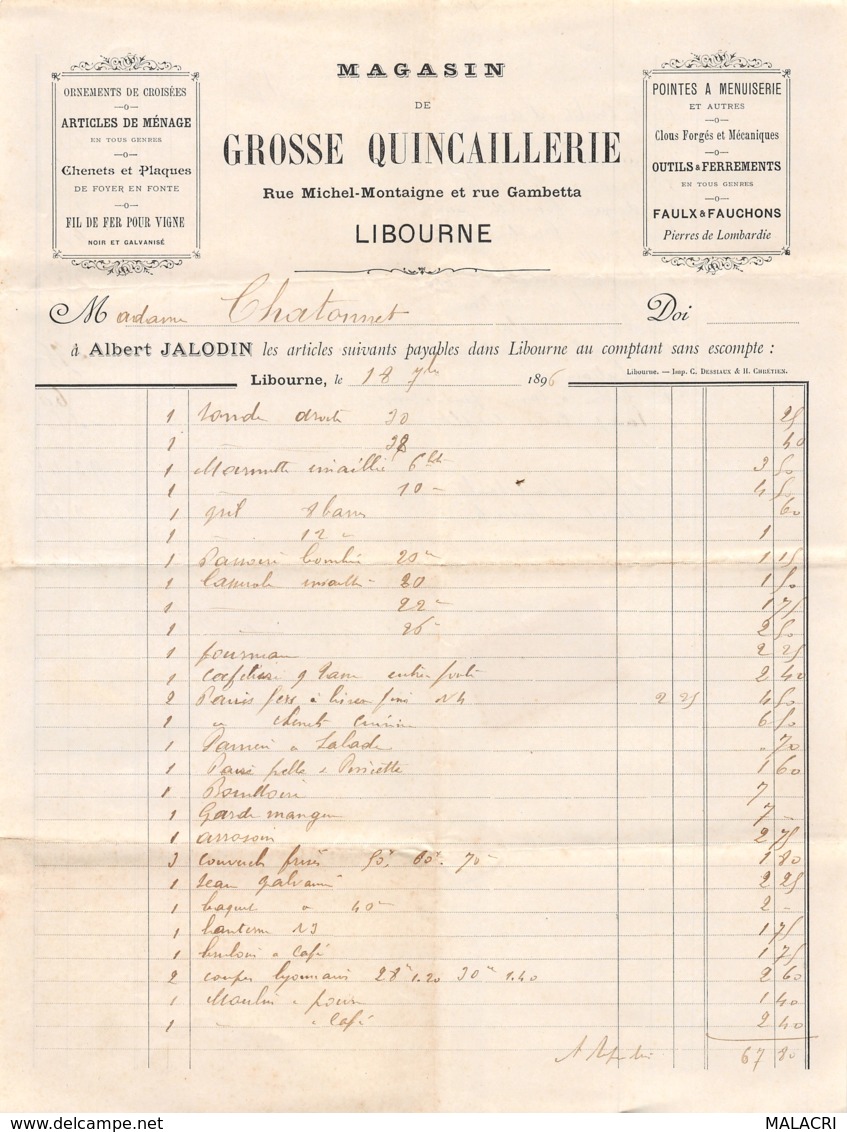 MAGASIN
DE
GROSSE QUINCAILLERIE
Rue Michel-Montaigne et rue Gambetta
LIBOURNE
ORNEMENTS DE CROISÉES
—o—
ARTICLES DE MÉNAGE
EN TOUS GENRES
—o—
Chenets et Plaques
DE FOYER EN FONTE
—o—
FIL DE FER POUR VIGNE
NOIR ET GALVANISÉ
POINTES A MENUISERIE
ET AUTRES
—o—
Clous Forgés et Mécaniques
—o—
OUTILS & FERREMENTS
EN TOUS GENRES
—o—
FAULX & FAUCHONS
Pierres de Lombardie
Madame Chatonnet Doi
à Albert JALODIN les articles suivants payables dans Libourne au comptant sans escompte :
Libourne, le 18 7bre 1896
Libourne. — Imp. C. DESSIAUX & H. CHRÉTIEN.
1 droite 30 25
1 — 38 40
1 Marmite émaillée 6 3 50
1 — 10 — 4 50
1 gril 8 barres 60
1 12 " 1
1 Passoire bombée 20 1 15
1 Casserole émaillée 20 1 50
1 22 — 1 75
1 — 26 — 2 50
1 fourneau 2 25
1 Cafetière 9 Tasses 2 40
2 fers à N4 2 25 4 50
1 " chenets cuisine 6 50
1 Panier à Salade " 70
1 Paire pelle & Pincette 1 60
1 Bouilloire 7
1 Garde manger 7 —
1 arrosoir 2 75
3 couvercles 50 60 70 1 80
1 Seau galvanisé 2 25
1 baquet " 40 2 —
1 Lanterne N3 1 75
1 bruloir à Café 1 75
2 coupes lyonnais 28 1.20 30 1.40 2 60
1 Moulin à poivre 1 40
1 — à Café 2 40
A Reporter 67 80
MALACRI